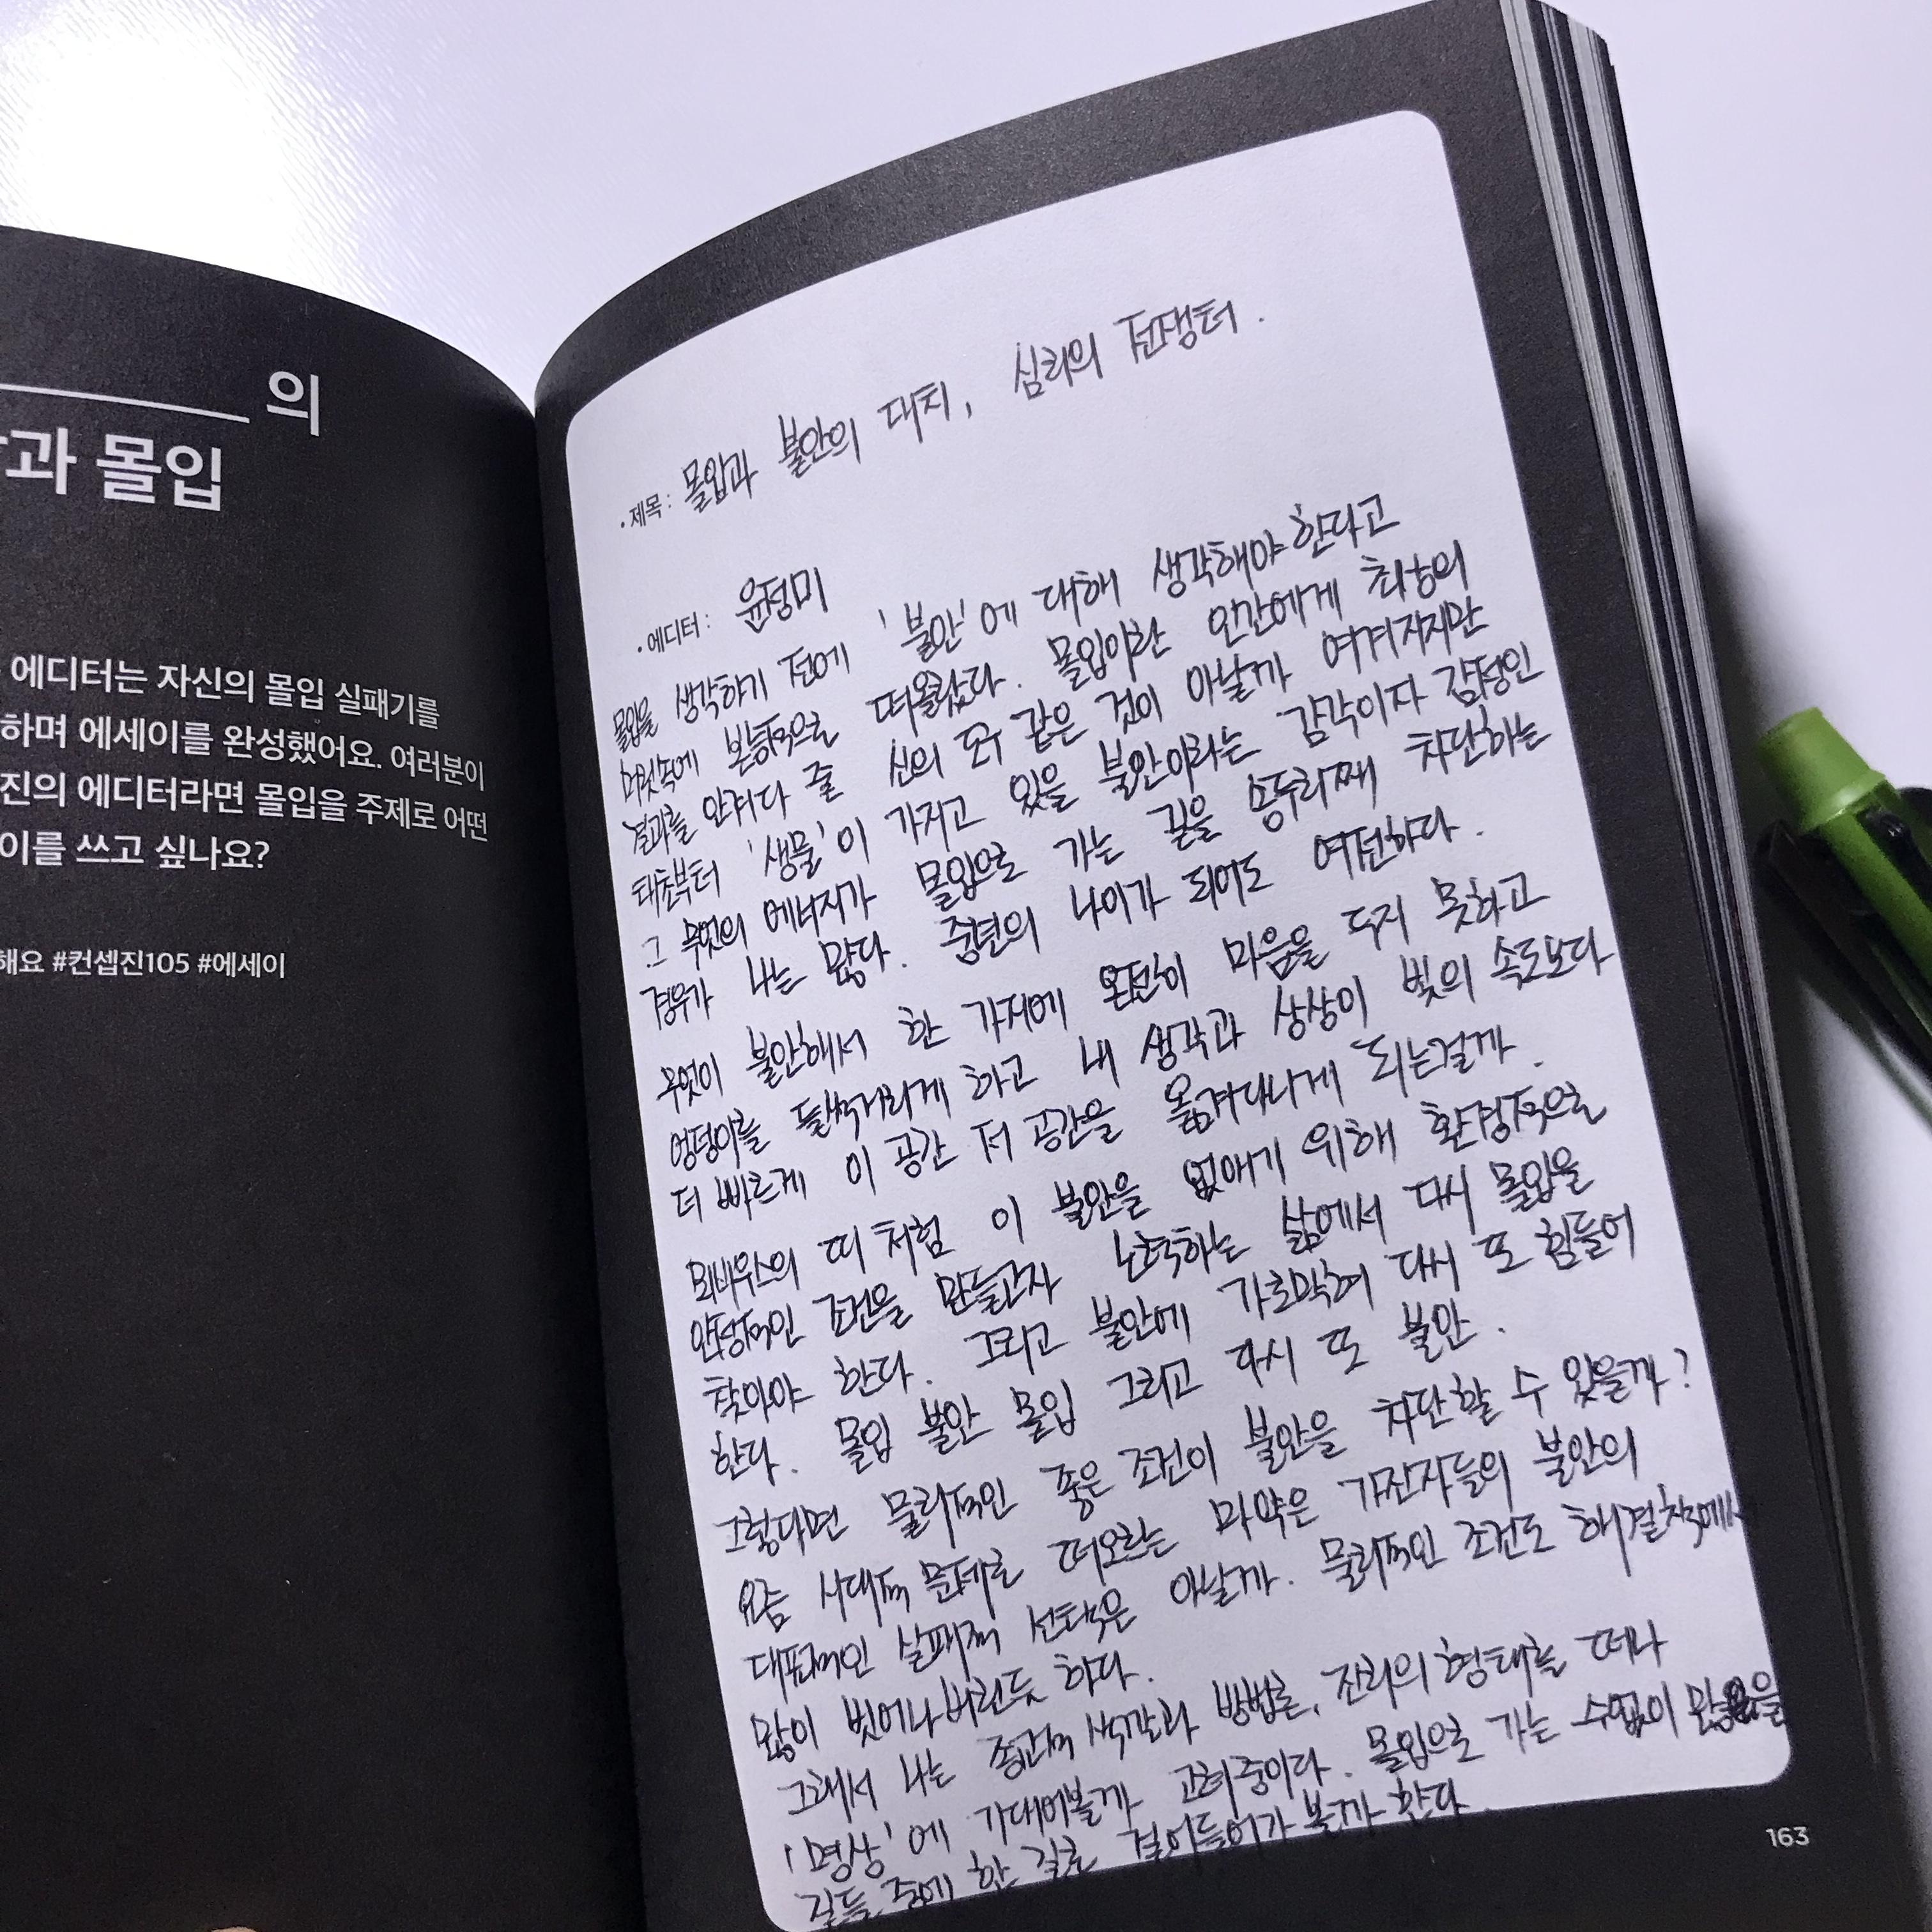 의
과 몰입
에디터는 자신의 몰입 실패기를
하며 에세이를 완성했어요. 여러분이
진의 에디터라면 몰입을 주제로 어떤
이를 쓰고 싶나요?
해요 #컨셉진105 #에세이
• 제목 : 몰입과 불안의 대치, 심리의 전쟁터.
• 에디터 : 윤정미
몰입을 생각하기 전에 '불안'에 대해 생각해야 한다고
머릿속에 본능적으로 떠올랐다. 몰입이란 인간에게 최상의
결과를 안겨다 줄 신의 도구 같은 것이 아닐까 여겨지지만
태초부터 '생물'이 가지고 있을 불안이라는 감각이자 감정인
그 무엇의 에너지가 몰입으로 가는 길을 송두리째 차단하는
경우가 나는 많다. 중년의 나이가 되어도 여전하다.
무엇이 불안해서 한 가지에 온전히 마음을 두지 못하고
엉덩이를 들썩거리게 하고 내 생각과 상상이 빛의 속도보다
더 빠르게 이 공간 저 공간을 옮겨다니게 되는걸까.
뫼비우스의 띠 처럼 이 불안을 없애기 위해 환경적으로
안정적인 조건을 만들고자 노력하는 삶에서 다시 몰입을
찾아야 한다. 그리고 불안에 가로막혀 다시 또 힘들어
한다. 몰입 불안 몰입 그리고 다시 또 불안.
그렇다면 물리적인 좋은 조건이 불안을 차단할 수 있을까?
요즘 시대적 문제로 떠오르는 마약은 가진자들의 불안의
대표적인 실패적 선택은 아닐까. 물리적인 조건도 해결책에서
많이 벗어나버린듯 하다.
그래서 나는 종교적 색깔과 방법론, 진리의 형태를 떠나
'명상'에 기대어볼까 고려중이다. 몰입으로 가는 수없이 많을
길들 중에 한 길로 걸어들어가 볼까 한다.
163